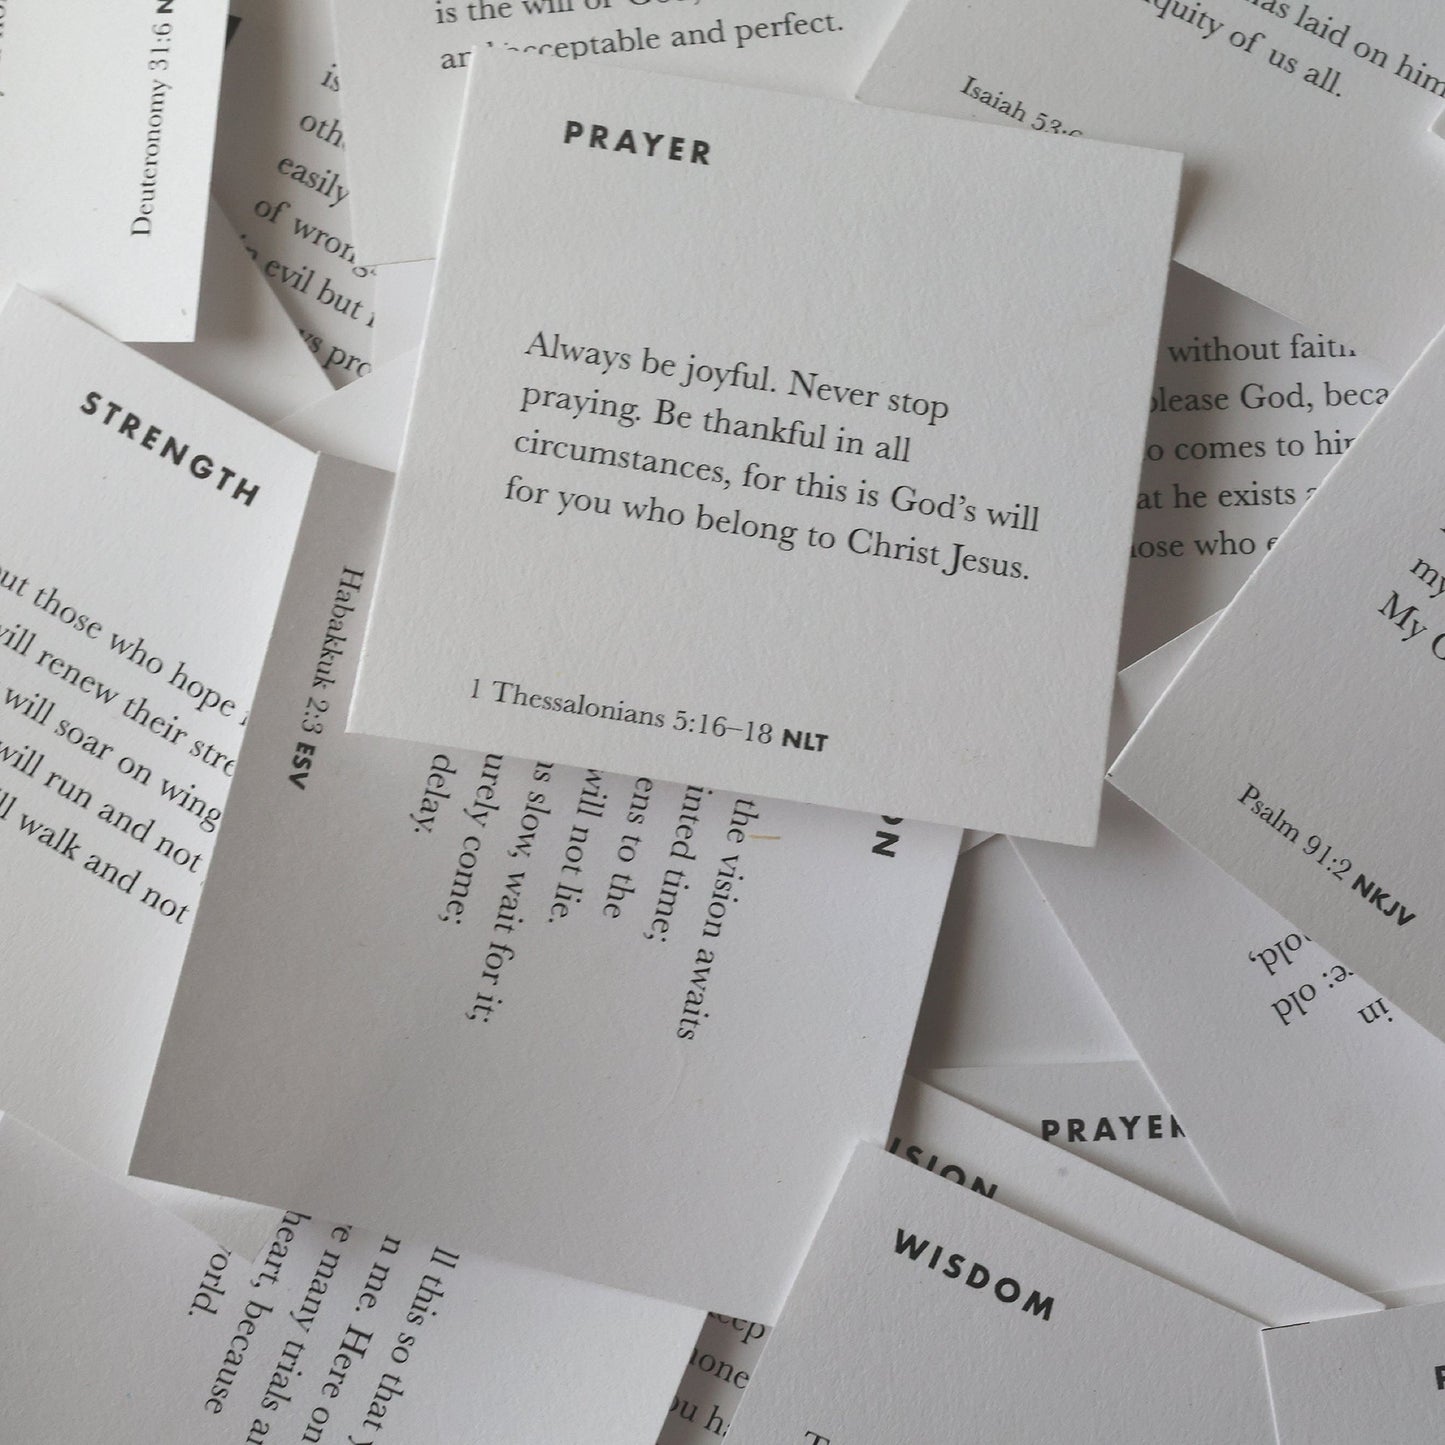 PRAYER
Always be joyful. Never stop
praying. Be thankful in all
circumstances, for this is God's will
for you who belong to Christ Jesus.
1 Thessalonians 5:16–18 NLT
Deuteronomy 31:6
easily
of wrong
evil but
is the will of God,
acceptable and perfect.
laid on him
of us all.
Isaiah 53:6
without faith
God,
comes to
he exists
who
STRENGTH
those who hope
renew their
will soar on
will run and not
walk and not
the vision awaits
time;
to the
will not lie.
slow, wait for it;
come;
delay.
Habakkuk 2:3 ESV
my
My
Psalm 91:2 NKJV
old,
old
in
PRAYER
WISDOM
this so that
me. Here on
many trials
heart, because